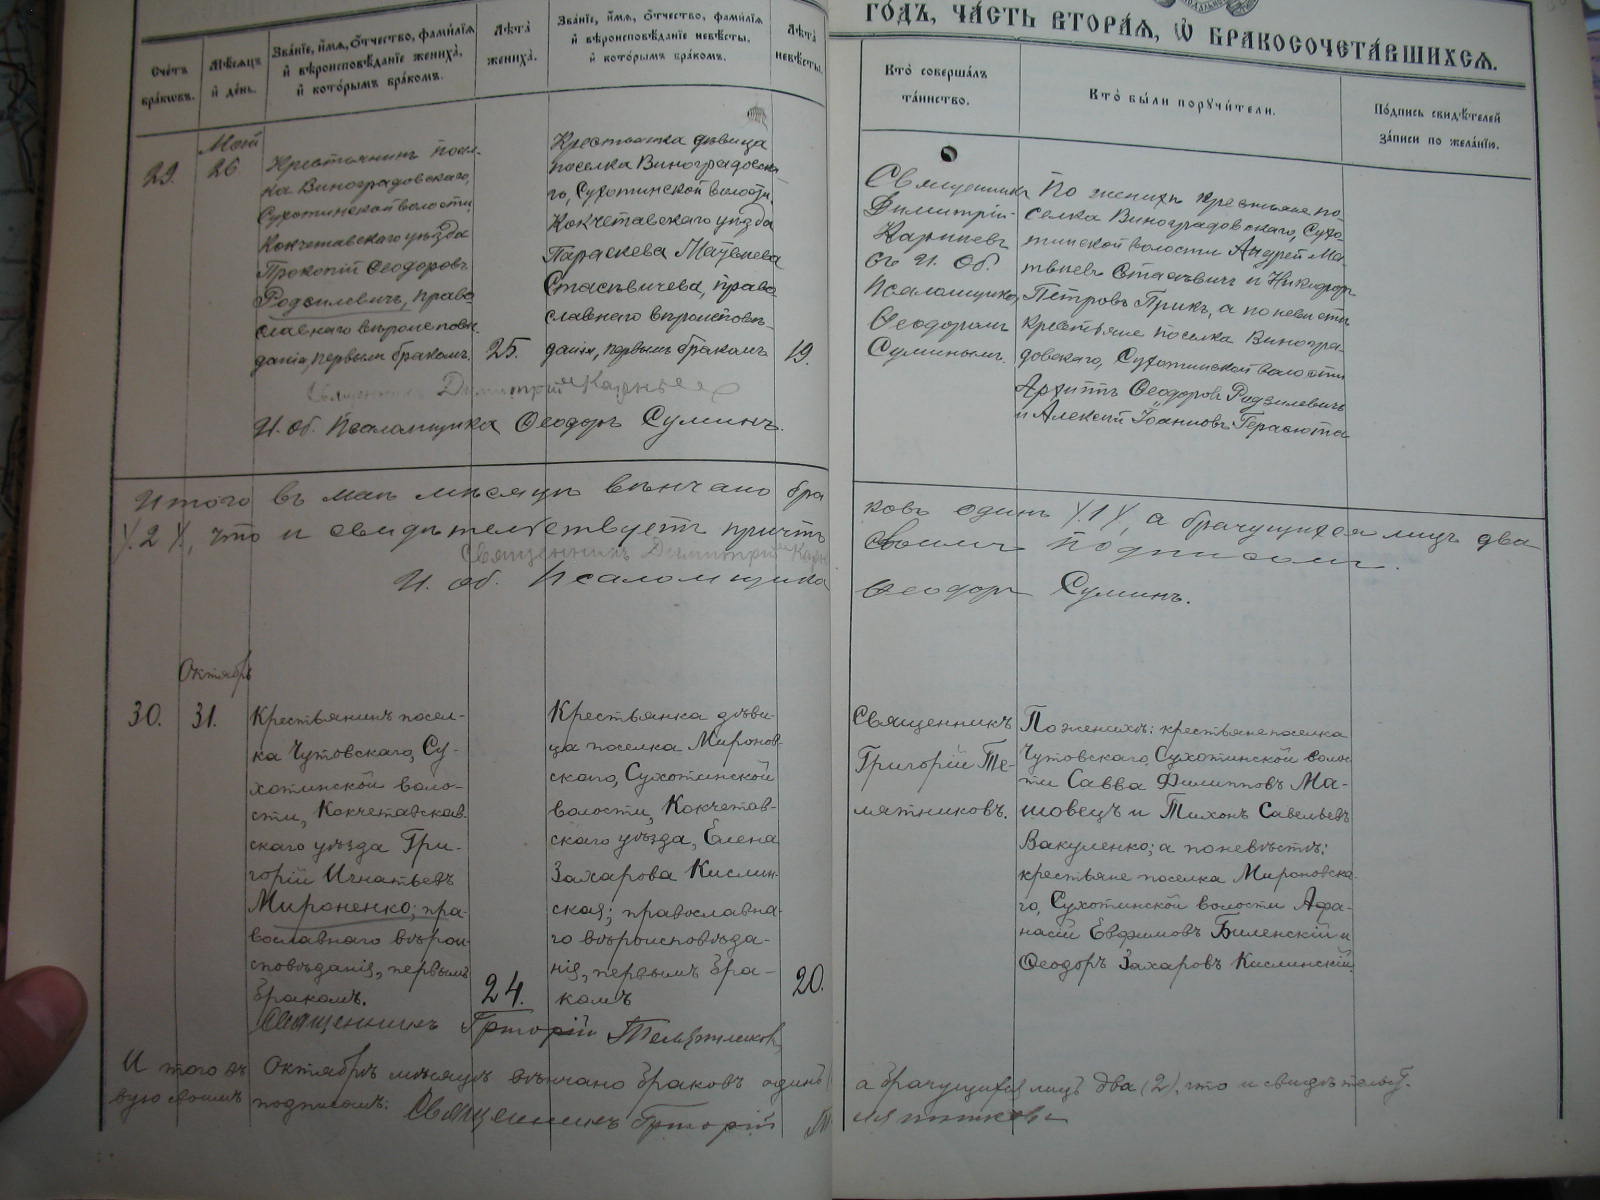 ГО́ДЪ, ЧА́СТЬ ВТОРА́Я, Ѡ БРАКОСОЧЕТА́ВШИХСЯ.
Сче́тъ
бра́ковъ.
Мѣ́сяцъ
и де́нь.
Зва́нїе, и́мя, о́тчество, фами́лїя
и вѣроисповѣ́данїе жениха̀,
и кото́рымъ бра́комъ.
Лѣта̀
жениха̀.
Зва́нїе, и́мя, о́тчество, фами́лїя
и вѣроисповѣ́данїе невѣ́сты,
и кото́рымъ бра́комъ.
Лѣта̀
невѣ́сты.
Кто̀ соверша́лъ
та́инство.
Кто̀ бы́ли поручи́тели.
По́дпись свидѣ́телей
за́писи по жела́нїю.
29.
Май
26
Крестьянинъ посел-
ка Виноградовскаго,
Сухотинской волости,
Кокчетавскаго уѣзда
Прокопій Ѳеодоровъ
Родзилевичъ, право
славнаго вѣроисповѣ-
данія, первымъ бракомъ.
25.
Крестьянка дѣвица
поселка Виноградовска-
го, Сухотинской волости,
Кокчетавскаго уѣзда
Параскева Матѳиева
Стасѣвичева, право
славнаго вѣроисповѣ-
данія, первымъ бракомъ
19.
Священникъ
Димитрій
Карпиевъ
Съ И. Об.
Псаломщика
Ѳеодоромъ
Суминымъ.
По женихѣ крестьяне по-
селка Виноградовскаго, Сухо-
тинской волости Андрей Ма-
твѣевъ Стасѣвичъ и Никифоръ
Петровъ Прикъ, а по невѣстѣ
крестьяне поселка Виногра-
довскаго, Сухотинской волости
Архиппъ Ѳеодоровъ Родзилевичъ
и Алексій Іоанновъ Герасюта
Священникъ Димитрій
И. об. Псаломщика Ѳеодоръ Суминъ.
Итого въ маѣ мѣсяцѣ вѣнчано бра
ковъ одинъ /.1/, а брачущихся лицъ два
/.2/, что и свидѣтельствуетъ причтъ
своимъ подписомъ.
Священникъ Димитрій
И. об. Псаломщика Ѳеодоръ Суминъ.
Октябрь
30.
31.
Крестьянинъ посел-
ка Чутовскаго, Су-
хотинской воло-
сти, Кокчетавскав-
скаго уѣзда Гри-
горій Игнатьевъ
Мироненко; пра-
вославнаго вѣрои-
сповѣданія, первымъ
бракомъ.
24.
Крестьянка дѣви-
ца поселка Миронов-
скаго, Сухотинской
волости, Кокчетав-
скаго уѣзда, Елена
Захарова Кислин-
ская; православна-
го вѣроисповѣда-
нія, первымъ бра-
комъ
20.
Священникъ
Григорій Те-
лятниковъ.
По женихѣ: крестьяне поселка
Чутовскаго, Сухотинской волос-
ти Савва Филипповъ Ма-
шовецъ и Тихонъ Савельевъ
Вакуленко; а по невѣстѣ:
крестьяне поселка Мироновска-
го, Сухотинской волости Афа-
насій Евфимовъ Биленскій и
Ѳеодоръ Захаровъ Кислинскій.
Священникъ Григорій Телятников
Итого въ Октябрѣ мѣсяцѣ вѣнчано браковъ одинъ
а брачущихся лицъ два (2), что и свидѣтельст-
вую своимъ подписомъ: Священникъ Григорій Те
лятниковъ